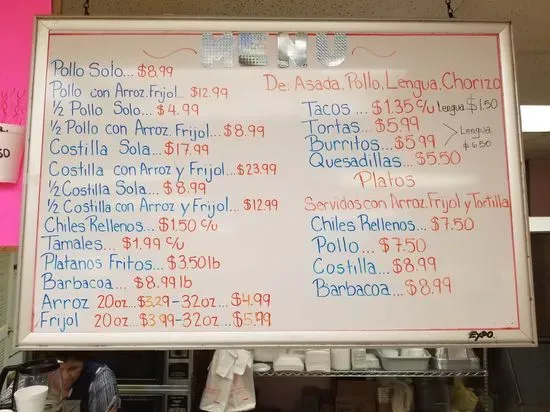 MENU
Pollo Solo... $8.99
Pollo con Arroz. Frijol... $12.99
½ Pollo Solo... $4.99
½ Pollo con Arroz. Frijol... $8.99
Costilla Sola... $17.99
Costilla con Arroz y Frijol... $23.99
½ Costilla Sola... $8.99
½ Costilla con Arroz y Frijol... $12.99
Chiles Rellenos... $1.50 c/u
Tamales... $1.99 c/u
Platanos Fritos... $3.50 lb
Barbacoa... $8.99 lb
Arroz 20oz... $3.29-32oz... $4.99
Frijol 20oz... $3.99-32oz... $5.99
De: Asada. Pollo. Lengua. Chorizo
Tacos ... $1.35 c/u Lengua $1.50
Tortas... $5.99
Burritos... $5.99
Lengua $6.50
Quesadillas... $5.50
Platos
Servidos con Arroz. Frijol y Tortilla
Chiles Rellenos... $7.50
Pollo... $7.50
Costilla... $8.99
Barbacoa... $8.99
EXPO